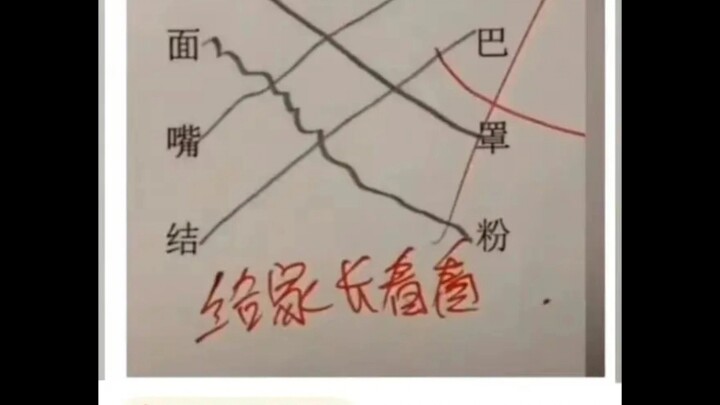 面 巴
嘴 罩
结 粉
给家长看看